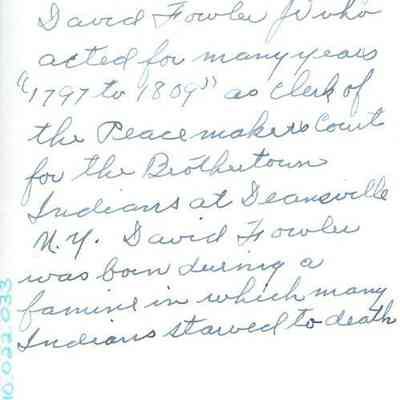 David Fowler Jr who
acted for many years
"1797 to 1809" as Clerk of
the Peacemakers Court
for the Brothertown
Indians at Deansville
N.Y. David Fowler
was born during a
famine in which many
Indians starved to death
10.022.033